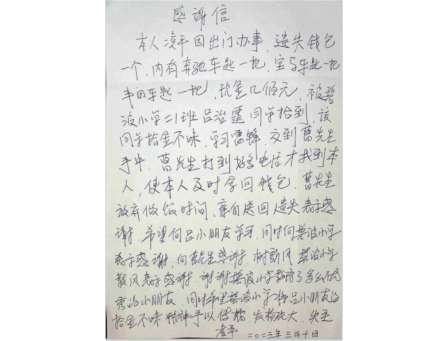 感谢信
本人凌平因出门办事,遗失钱包
一个,内有奔驰车匙一把,宝马车匙一把
丰田车匙一把,现金几佰元,被碧
波小学二1班吕 同学拾到,该
同学拾金不昧,学习雷锋,交到曹先生
手中,曹先生打到 电话才找到本
人,使本人及时拿回钱包,曹先生
放弃做饭时间,亲自送回遗失表示感
谢,希望向吕小朋友学习,同时向碧波小学
表示感谢,向曹先生学习 树新风 碧波小学
新风表示感谢,谢谢碧波小学教育了多么优
秀的小朋友,同时希望碧波小学 吕小朋友的
拾金不昧精神予以 发扬光大,失主
凌平 二〇二三年三月十日